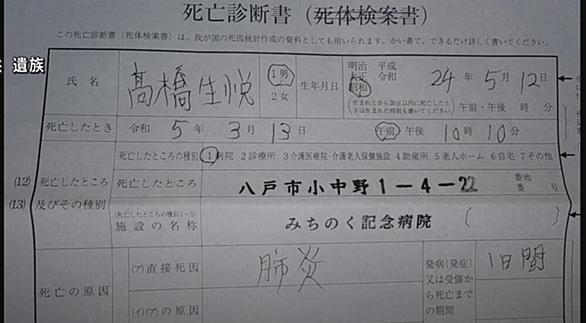 死亡診断書（死体検案書）
この死亡診断書（死体検案書）は、我が国の死因統計作成の資料としても用いられます。かい書で、できるだけ詳しく書いてください。
遺族
氏 名 髙橋生悦 1男 2女 生年月日 明治 平成 大正 令和 昭和 24年 5月 12日
生まれてから30日以内に死亡したときは生まれた時刻も書いてください 午前・午後 時 分
死亡したとき 令和 5年 3月 13日 午前 午後 10時 10分
(12) (13) 死亡したところ及びその種別
死亡したところの種別 1病院 2診療所 3介護医療院・介護老人保健施設 4助産所 5老人ホーム 6自宅 7その他
死亡したところ 八戸市小中野1-4-22 番地 番 号
(死亡したところの種別1~5) 施設の名称 みちのく記念病院 ( )
死亡の原因
(ア)直接死因 肺炎
(イ)(ア)の原因
発病(発症)又は受傷から死亡までの期間 1日間